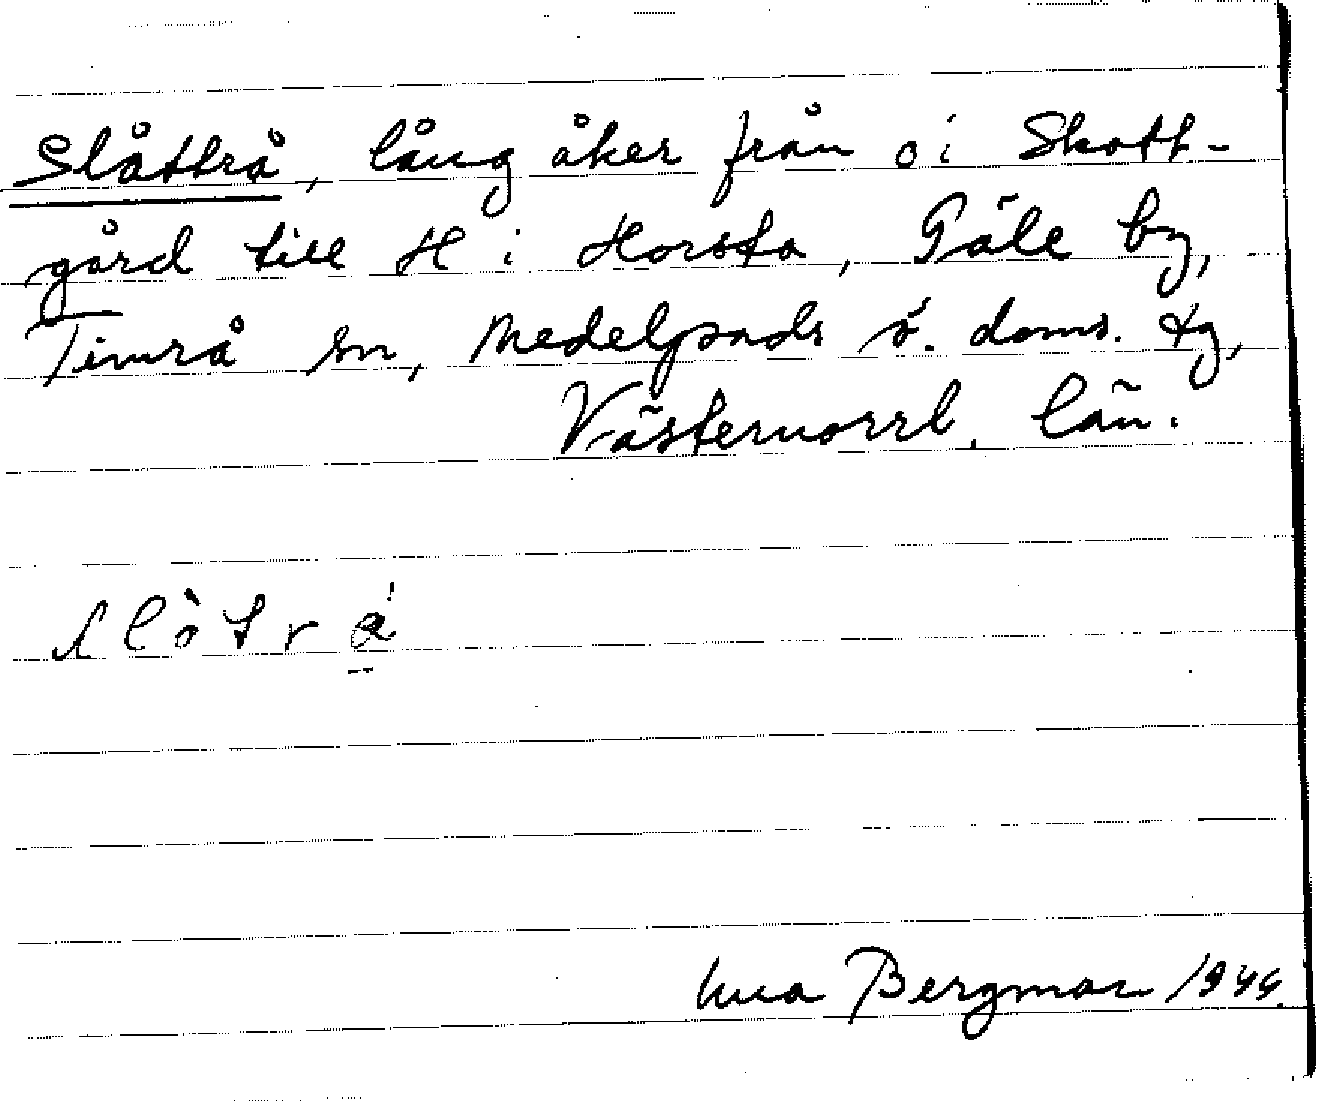 Slåttrå, lång åker från o i Skott-
gård till H i Horsta, Päle by,
Timrå sn, Medelpads ö. doms. tg,
Västernorrl. län.
slòtrå
Bergman 1944.